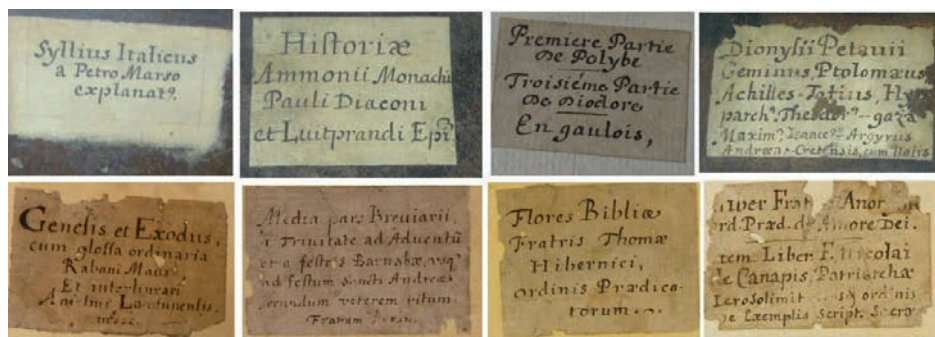 Syllius Italicus
a Petro Marso
explanat⁹.
Historiæ
Ammonii Monachi
Pauli Diaconi
et Luitprandi Epi.
Premiere Partie
de Polybe
Troisiéme Partie
de Diodore
En gaulois,
Dionysii Petavii
Geminus, Ptolomæus
Achilles-Totius,
parch⁹. gaza
Maxim⁹ Argyrus
Andreas-Cretensis, cum
Genesis et Exodus,
cum glossa ordinaria
Rabani Mauri
Et interlineari
Anselmi
Media pars Breviarii,
a Trinitate ad Adventũ
et a festo S. Barnabæ, usq⁹
ad festum Sancti Andreæ
secundum veterem ritum.
Fratrum
Flores Bibliæ
Fratris Thomæ
Hibernici,
ordinis Prædica-
torum.
Liber
ord. Præd. de Amore Dei.
Item. Liber F. Nicolai
de Canapis, Patriarchæ
Ierosolimit ordinis
de Exemplis Script. Sacræ